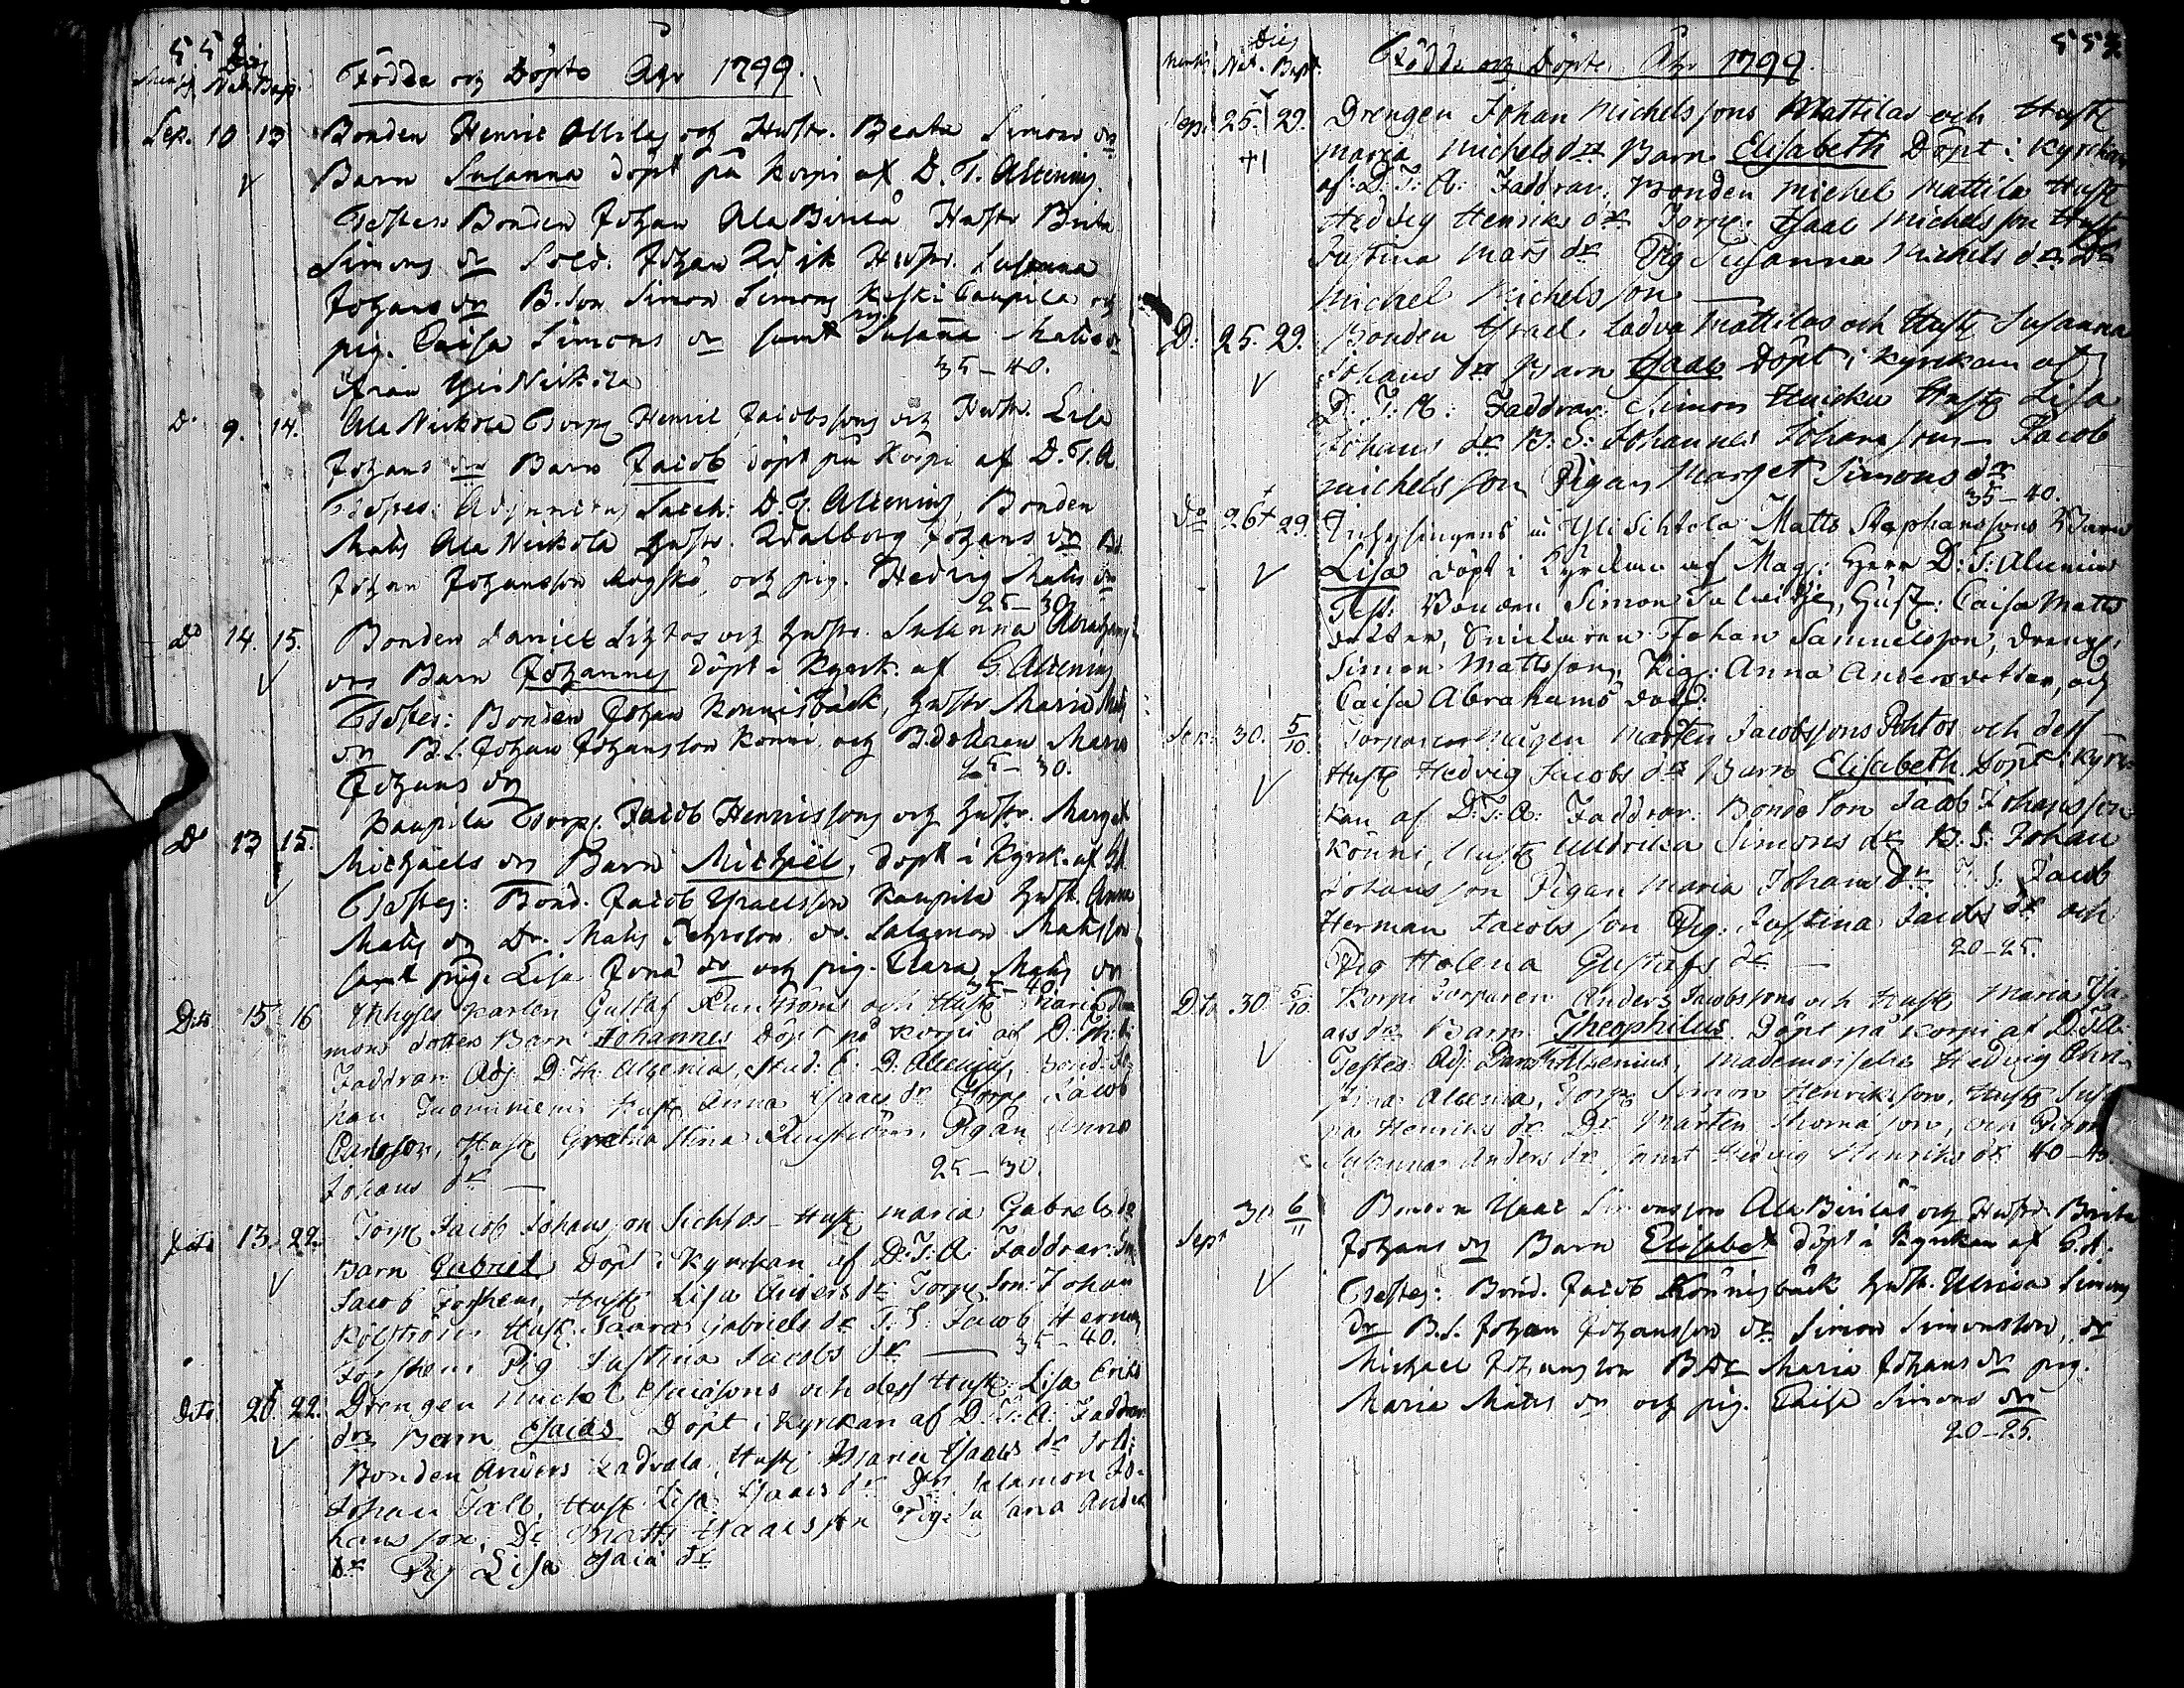 552
Dies
Nat. Bap.
Födde och Döpte Åhr 1799.
Sep. 10 13 Bonden Henric Ollilas och Hustr. Beata Simons dr
Barn Susanna döpt på Korpi af D. T. Alcenius.
Testes Bonden Johan Ala Birilä Hustr Brita
Simons dr Sold. Johan Hustr. Susanna
Johans dr B. Son Simon Simons Keski Caupila och
pig. Caisa Simons dr samt pig. Susanna Matts dr
från Yli Nickola 35-40.
Do 9. 14. Ala Nickola Torp. Henric Jacobssons och Hustr. Lisa
Johans dr Barn Jacob döpt på Korpi af D. T. A.
Testes: Adjunctus Sacell: D. T. Alcenius, Bonden
Matts Ala Nickola Hustr. Walborg Johans dr
Johan Johansson och pig. Hedvig Matts dr
25-30
Do 14. 15. Bonden Daniel och Hustr. Susanna Abrahams
drs Barn Johannes döpt i Kyrk. af G. Alcenius
Testes: Bonden Johan Konnisback, Hustr Maria Matts
dr B. S. Johan Johansson Könni och B. dottren Maria
Johans dr 25-30.
Do 13 15. Kaupila Torp. Jacob Henrissons och Hustr. Marget
Michaels drs Barn Michaël, döpt i Kyrk. af
Testes: Bond. Jacob Ysraelsson Kaupila Hustr. Anna
Matts dr Dr. Matts dr. Salamon Mattsson
samt pig. Lisa Jona dr och pig. Clara Matts dr
35-40
Dito 15 16 Inhyses Karlen Gustaf Runströms och Hustr Maria
mons dotters Barn Johannes Döpt på Korpi af D. Th: A:
Faddrar Adj D: Th: Alcenius, Stud: E: D: Alcenius, Bond: Jo
han Hustr Anna Isaacs dr Torp Jacob
Carlsson, Hustr Greta Stina Runström, Pigan Anna
Johans dr 25-30.
Dito 13. 22. Torp Jacob Johansson Sichtos Hustr Maria Gabriels dr
Barn Gabriel Döpt i Kyrckan af D: T: A: Faddrar:
Jacob Forsbem, Hustr Lisa Anders dr Torp Son Johan
Hustr: Saara Gabriels dr T: S: Jacob Herman
Pig Justina Jacobs dr 35-40.
Dito 20. 22. Drengen Michel Esaiasons och dess Hustr: Lisa Eriks
drs Barn Esaias Döpt i Kyrckan af D: T: A: Faddrar
Bonden Anders Ladvala, Hustr Maria Isaacs dr Sold:
Johan Falk, Hustr Lisa Isaacs dr Dr. Salamon Jo-
hansson, Dr Matts Isaacsson Pig: Susana Anders
dr Pig Lisa Esaiæ dr
553.
Dies
Nat. Bapt.
Födde och Döpte Åhr 1799.
Sept 25. 29. Drengen Johan Michelssons Mattilas och Hustr
Maria Michels drs Barn Elisabeth Döpt i Kyrckan
af: D: T: A: Faddrar: Bonden Michel Mattila Hustr
Hedvig Henriks dr Torp: Isaac Michelsson Hustr
Justina Mars dr Pig Susanna Michels dr Dr
Michel Michelsson
D: 25. 29. Bonden Israel Ladva Mattilas och Hustr Susanna
Johans drs Barn Isaac Döpt i Kyrckan af
D: T: A: Faddrar: Simon Hustr Lisa
Johans dr B: S: Johannes Johansson Jacob
Michelsson Pigan Marget Simons dr
35-40.
Do 26 29. Inhysingens å Yli Sichtola Matts Stephanssons Barn
Lisa döpt i Kyrckan af Mag: Herr D: T: Alcenius
Test: Bonden Simon Hustr: Caisa Matts
dotter, Snickaren Johan Samuelsson, Dreng:
Simon Mattsson, Pig: Anna Andersdotter, och
Caisa Abrahams dott:
Sep: 30. 5/10. Mårten Jacobssons Pohtos och dess
Hustr Hedvig Jacobs drs Barn Elisabeth Döpt i Kyrc-
kan af D: T: A: Faddrar: Bonde Son Jacob Johansson
Könni, Hustr Ulldrika Simons dr B: S: Johan
Johansson Pigan Maria Johans dr T: S: Jacob
Herman Jacobsson Pig: Justina Jacobs dr och
Pig Helena Gustafs dr 20-25.
Dito 30. 5/10. Korpi Torparen Anders Jacobssons och Hustr Maria Isa-
acs dr Barn Theophilus Döpt på Korpi af D: T: A:
Testes Adj: Alcenius, Mademoiselle Hedvig Chri-
stina Alcenia, Torp Simon Henriksson, Hustr Susa
na Henriks dr Dr Mårten Thomasson, och Pigan
Susanna Anders dr samt Hedvig Henriks dr 40-45.
Sept 30 6/11 Bonden Isaac Simonsson Ala Biriläs och Hustr Brita
Johans drs Barn Elisabet döpt i Kyrckan af G. A.
Testes: Bond. Jacob Könnisback Hustr. Ulrica Simons
dr B. S. Johan Johansson Dr Simon Simonsson, dr
Michael Johansson B Dr Maria Johans dr pig.
Maria Matts dr och pig. Caisa Simons dr
20-25.